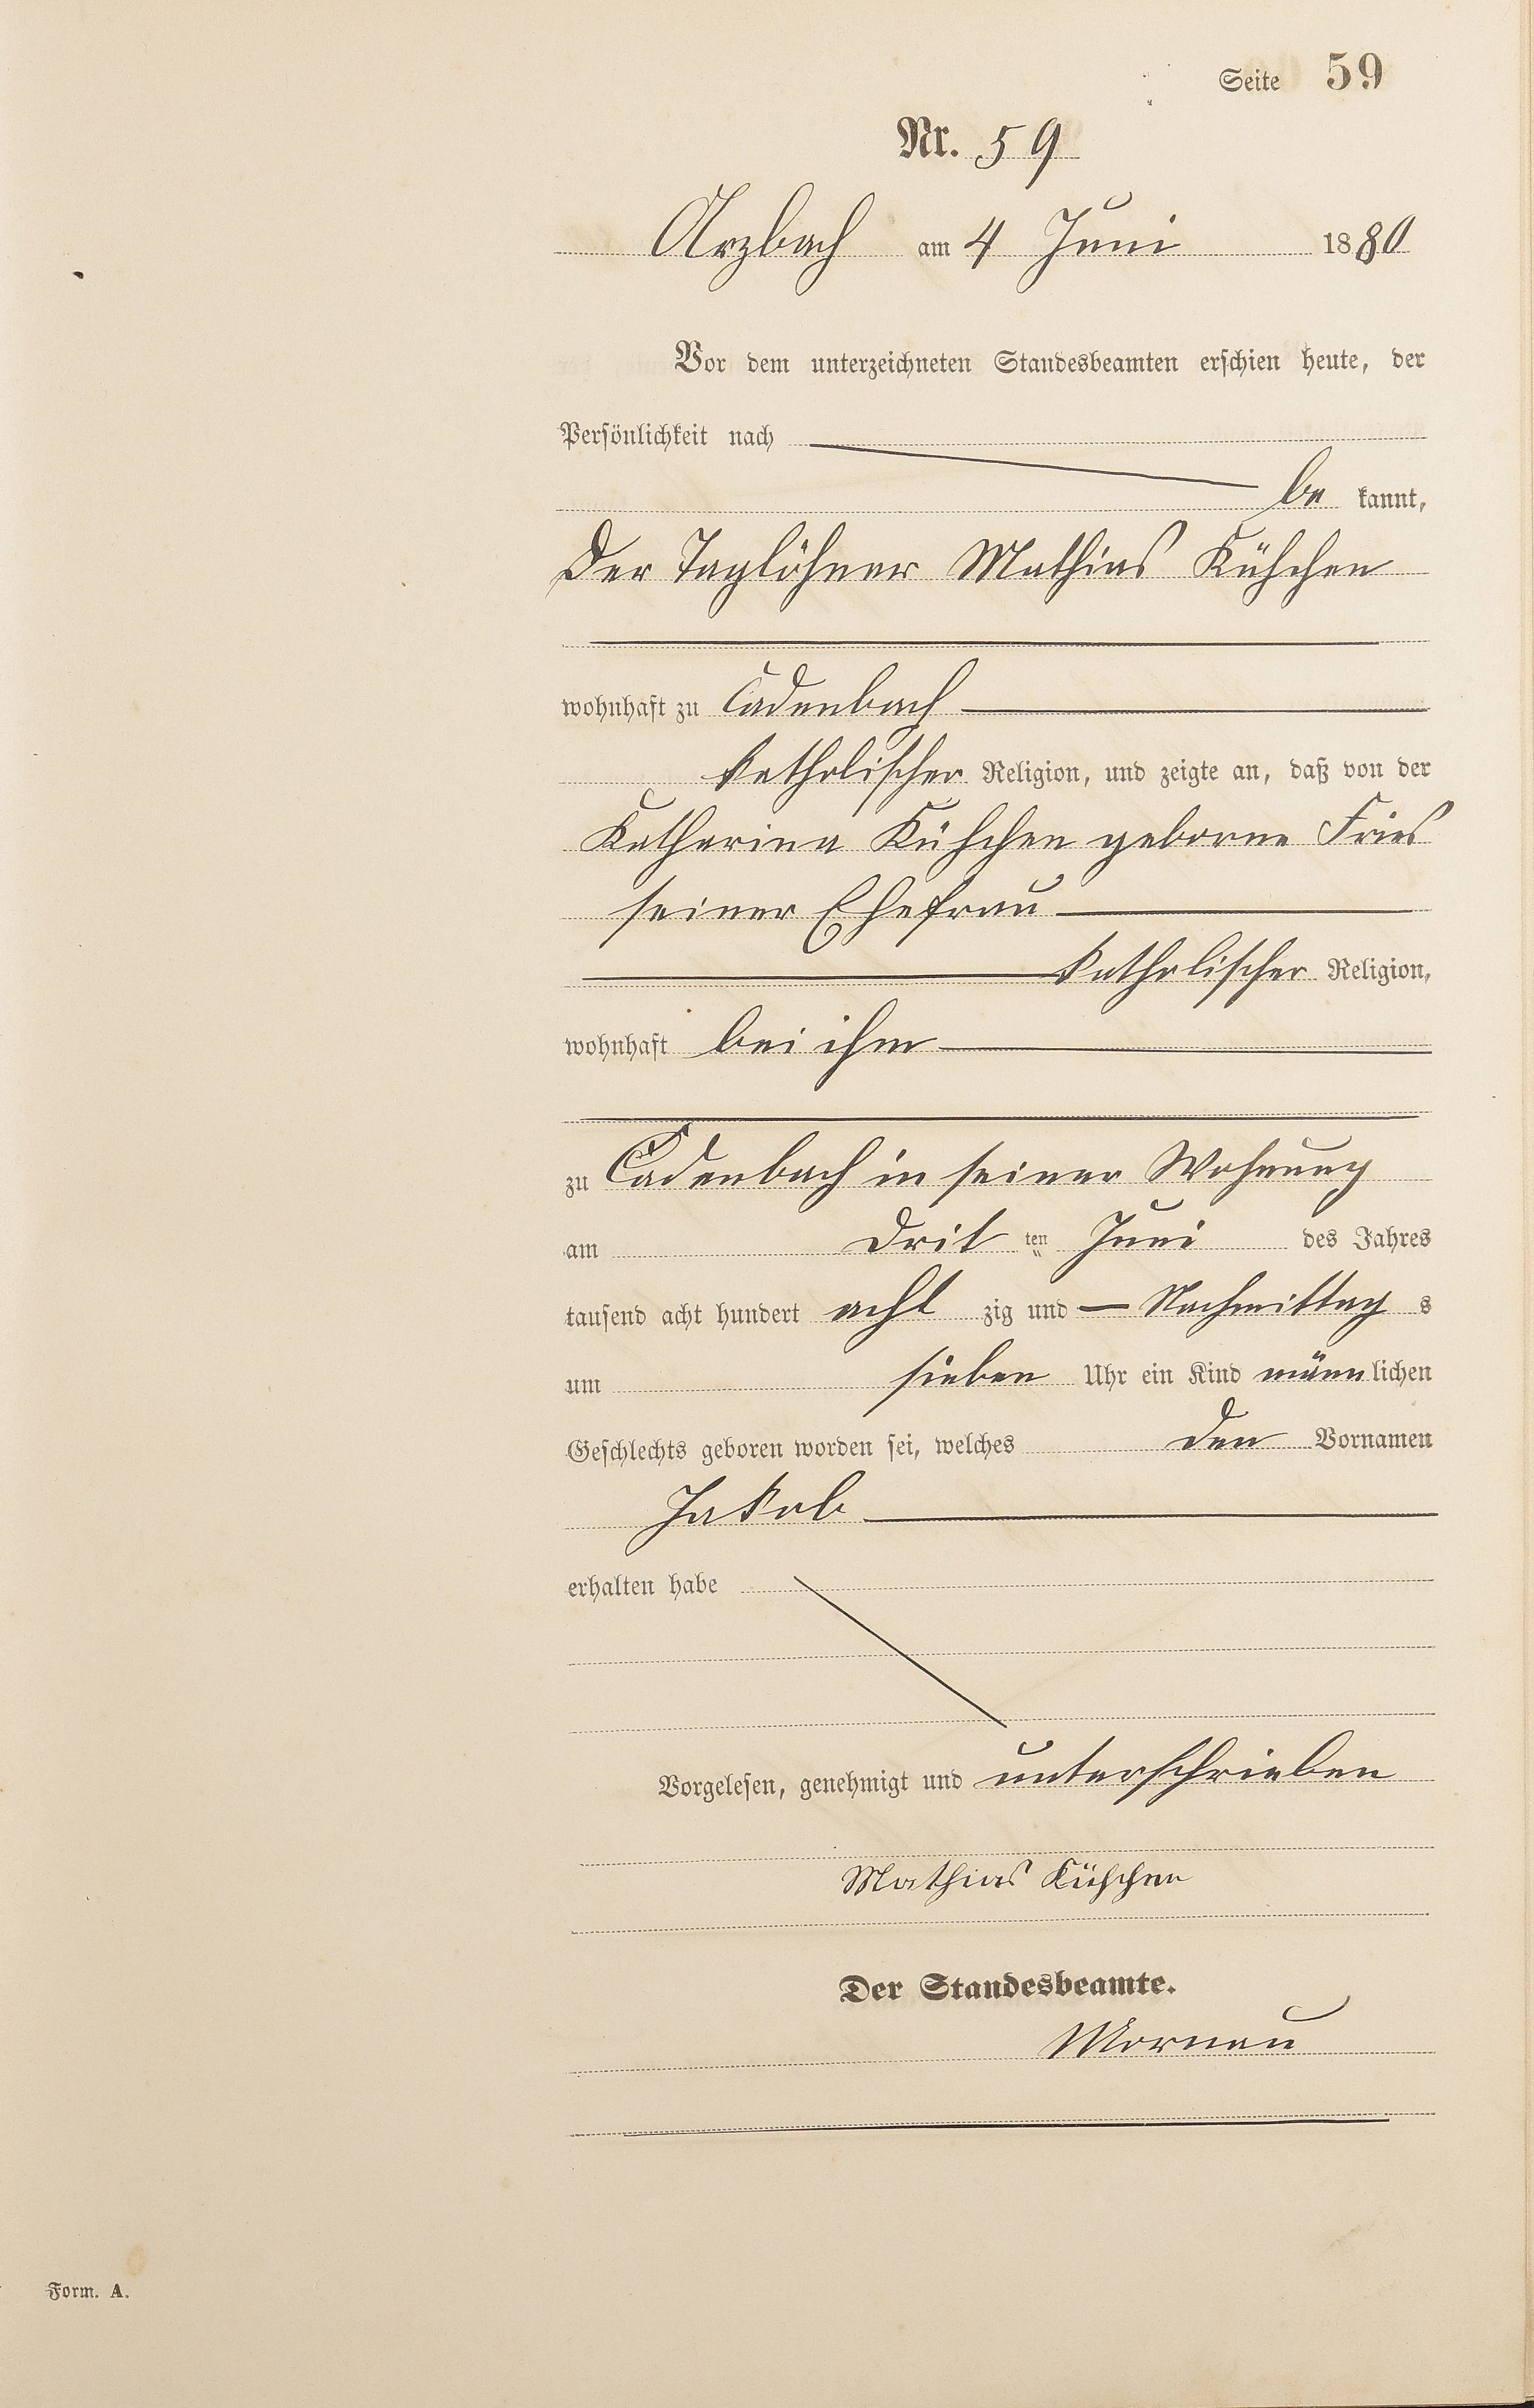 Seite 59
Nr. 59
Arzbach am 4 Juni 1880
Vor dem unterzeichneten Standesbeamten erschien heute, der
Persönlichkeit nach
be kannt,
Der Taglöhner Mathias Kühchen
wohnhaft zu Cadenbach
katholischer Religion, und zeigte an, daß von der
Katharina Kühchen geborne Fries
seiner Ehefrau
katholischer Religion,
wohnhaft bei ihm
zu Cadenbach in seiner Wohnung
am drit ten Juni des Jahres
tausend acht hundert acht zig und — Nachmittag s
um sieben Uhr ein Kind männlichen
Geschlechts geboren worden sei, welches den Vornamen
Jakob
erhalten habe
Vorgelesen, genehmigt und unterschrieben
Mathias Kühchen
Der Standesbeamte.
Mornau
Form. A.